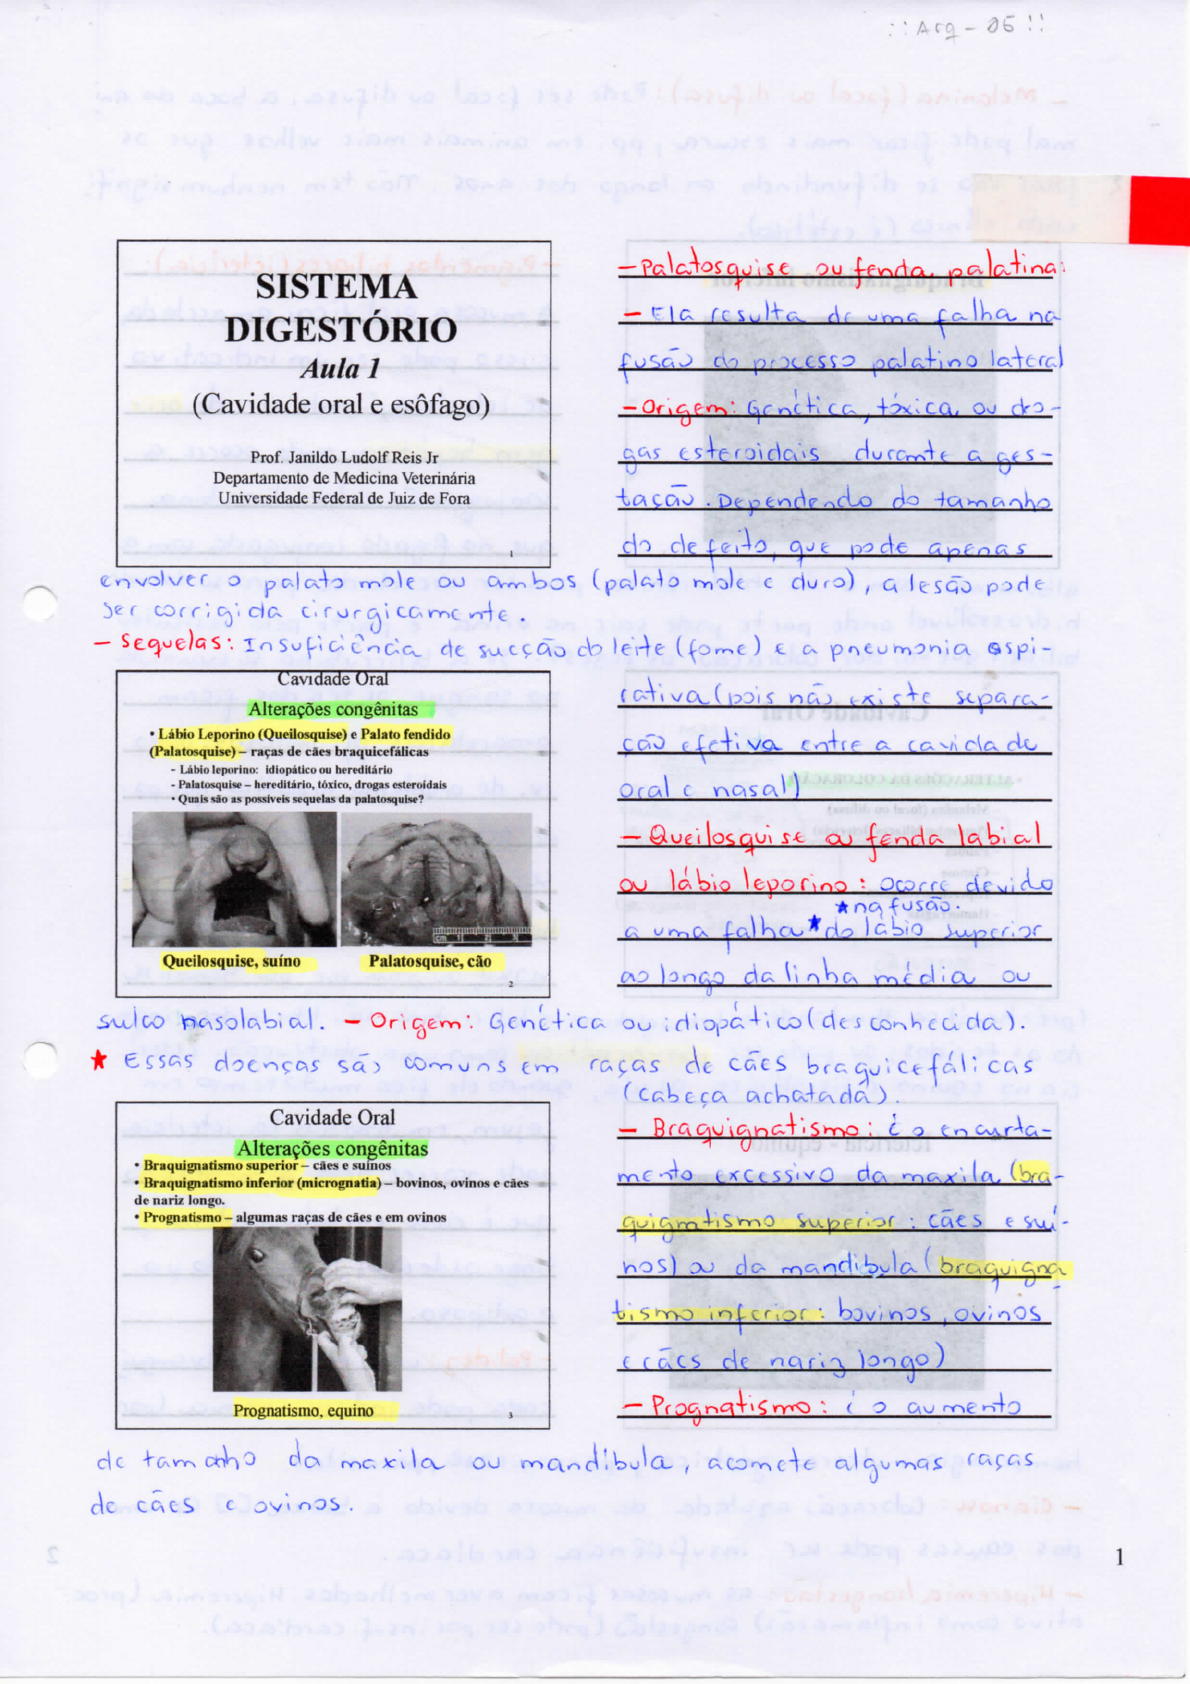 ::Arq-05!!
SISTEMA
DIGESTÓRIO
Aula 1
(Cavidade oral e esôfago)
Prof. Janildo Ludolf Reis Jr
Departamento de Medicina Veterinária
Universidade Federal de Juiz de Fora
1
- Palatosquise ou fenda palatina:
- Ela resulta de uma falha na
fusão do processo palatino lateral
- Origem: Genética, tóxica, ou dro-
gas esteroidais durante a ges-
tação. Dependendo do tamanho
do defeito, que pode apenas
envolver o palato mole ou ambos (palato mole e duro), a lesão pode
ser corrigida cirurgicamente.
- Sequelas: Insuficiência de sucção do leite (fome) e a pneumonia aspi-
rativa (pois não existe separa-
ção efetiva entre a cavidade
oral e nasal)
Cavidade Oral
Alterações congênitas
• Lábio Leporino (Queilosquise) e Palato fendido
(Palatosquise) – raças de cães braquicefálicas
- Lábio leporino: idiopático ou hereditário
- Palatosquise – hereditário, tóxico, drogas esteroidais
• Quais são as possíveis sequelas da palatosquise?
cm 1 2 3
Queilosquise, suíno
Palatosquise, cão
2
- Queilosquise ou fenda labial
ou lábio leporino: ocorre devido
★ na fusão.
a uma falha ★ do lábio superior
ao longo da linha média ou
sulco nasolabial. - Origem: Genética ou idiopático (desconhecida).
★ Essas doenças são comuns em raças de cães braquicefálicas
(cabeça achatada).
Cavidade Oral
Alterações congênitas
• Braquignatismo superior – cães e suínos
• Braquignatismo inferior (micrognatia) – bovinos, ovinos e cães
de nariz longo.
• Prognatismo – algumas raças de cães e em ovinos
Prognatismo, equino
3
- Braquignatismo: é o encurta-
mento excessivo da maxila (bra-
quignatismo superior: cães e suí-
nos) ou da mandíbula (braquigna-
tismo inferior: bovinos, ovinos
e cães de nariz longo)
- Prognatismo: é o aumento
de tamanho da maxila ou mandíbula, acomete algumas raças
de cães e ovinos.
1